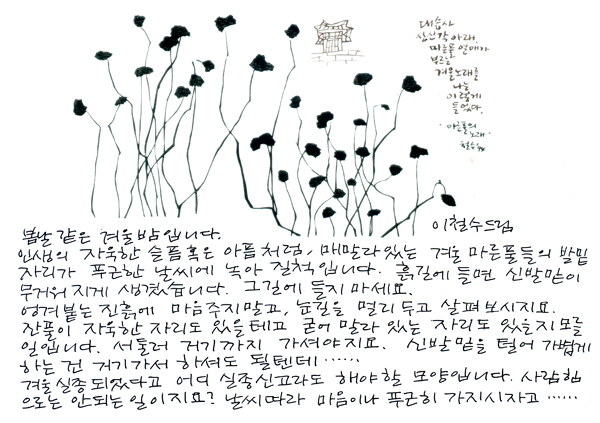 대승사
삼신각 아래,
마른풀 열매가
부르는
겨울노래를
나는
이렇게
들었다.
·마른풀의
노래·
철수
이철수드림
봄날 같은 겨울밤입니다.
인생의 자욱한 슬픔 혹은 아픔처럼, 매말라있는 겨울 마른풀들의 발밑
자리가 푸근한 날씨에 녹아 질척입니다. 흙길에 들면 신발밑이
무거워지게 생겼습니다. 그길에 들지 마세요.
엉겨붙는 진흙에 마음주지말고, 눈길을 멀리 두고 살펴보시지요.
잔풀이 자욱한 자리도 있을테고 굳어 말라 있는 자리도 있을지 모를
일입니다. 서둘러 거기까지 가셔야지요. 신발밑을 털어 가볍게
하는 건 거기가서 하셔도 될텐데……
겨울 실종되었다고 어디 실종신고라도 해야할 모양입니다. 사람힘
으로는 안되는 일이지요? 날씨따라 마음이나 푸근히 가지시자고……